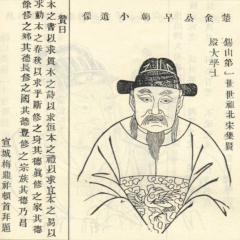 楚金公早朝小遺像
錫山第一世世祖北宋集賢
殿大學士
贊曰
本之書以求質本之詩以求恒本之禮以求宜本之易以
求動本之春秋以求乎修之身其德眞修之家其德
修之鄉其德長修其德豊修之宗族其德乃昌
宣城梅鼎祚頓首拜題